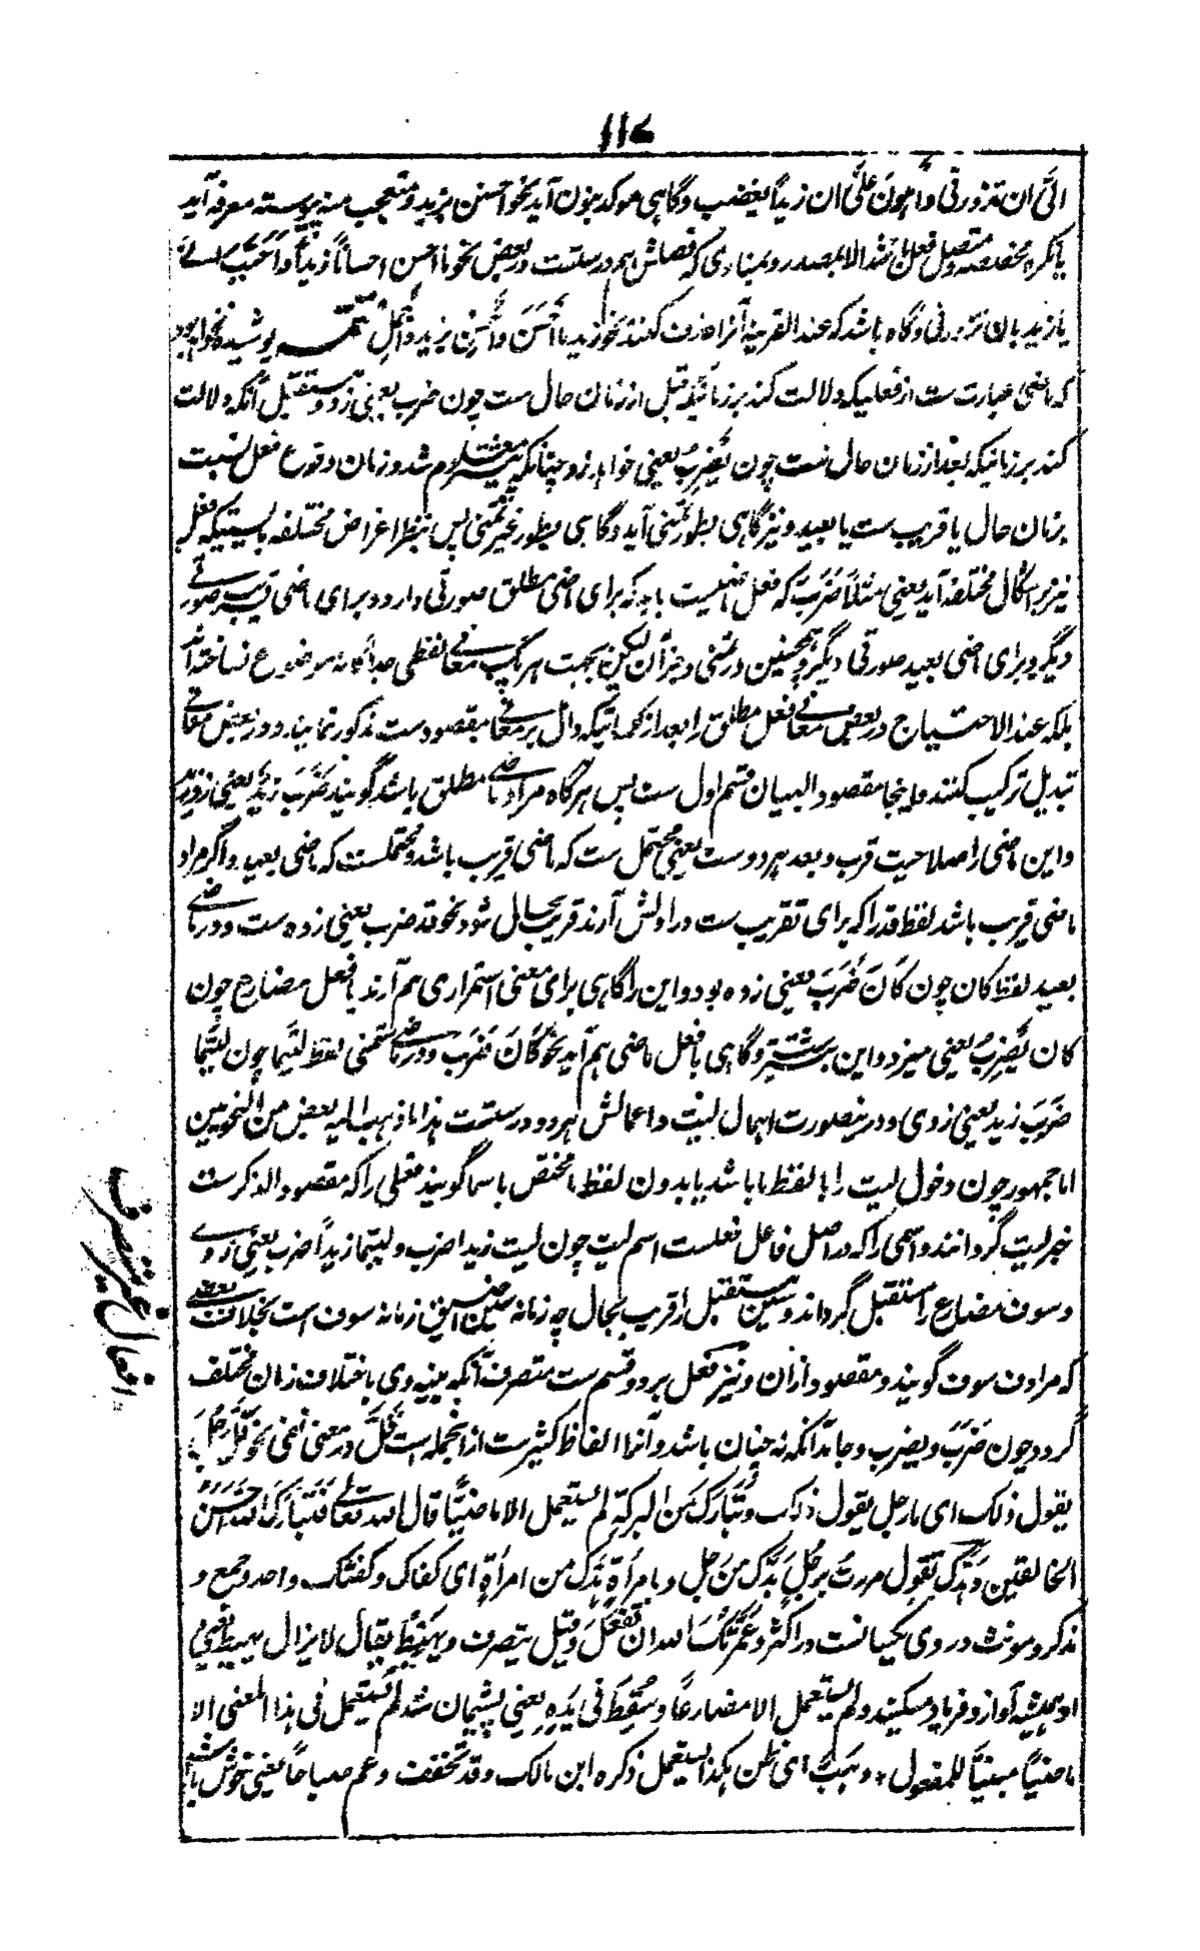 ۱۱۷
الیّ ان تزورنی و اہون علیّ ان زیداً یغضب و گاہی موکد بنون آید نحو احسنن بزید و متعجب منہ پیوستہ معرفہ آید
یا نکرہ مخصصہ و متصل فعل باشد الا بمصدر و بمنادی کہ فصلش ہم درستست و ربعض نحو ما احسن احساناً زیداً و احبب
یا زید بان تزورنی و گاہ باشد کہ عند القرینہ آنرا حذف کنند نحو زید ما احسن و احسن بزید و اجمل پوشیدہ نخواہد بود
کہ ماضی عبارت ست از فعلیکہ دلالت کند بر زمانیکہ قبل از زمان حال ست چون ضرب یعنی زد و مستقبل آنکہ دلالت
کند بر زمانیکہ بعد از زمان حال ست چون یضرب یعنی خواہد زد چنانکہ پیشتر معلوم شد و زمان وقوع فعل نسبت
بزمان حال یا قریب ست یا بعید و نیز گاہی بطور تمنی آید و گاہی بطور غیر تمنی پس بنظر اغراض مختلفہ بایستیکہ فعل
نیز بر اشکال مختلفہ آید یعنی مثلاً ضرب کہ فعل ماضیست باید کہ برای ماضی مطلق صورتی دارد و برای ماضی قریب صورتے
دیگر و برای ماضی بعید صورتی دیگر و ہمچنین در تمنی و جز آن لیکن بجہت ہر یک معانے لفظی جداگانہ موضوع نساختہ اند
بلکہ عند الاحتیاج در بعض معانے فعل مطلق را بعد از کلماتیکہ دال بر معانے مقصودست مذکور نمایند و در بعض معانے
تبدیل ترکیب کنند و اینجا مقصود البیان قسم اول ست پس ہر گاہ مراد ماضے مطلق باشد گویند ضرب زید یعنی زد زید
و این ماضی را صلاحیت قرب و بعد ہر دوست یعنی محتمل ست کہ ماضی قریب باشد و محتملست کہ ماضی بعید و اگر مراد
ماضی قریب باشد لفظ قد را کہ برای تقریب ست در اولش آرند قریب بحال شود نحو قد ضرب یعنی زدہ ست و در ماضے
بعید لفظ کان چون کان ضرب یعنی زدہ بود و این را گاہی برای معنی استمراری ہم آرند با فعل مضارع چون
کان یضرب یعنی میزد و این بیشتر و گاہی با فعل ماضی ہم آید نحو کان ضرب و در ماضے تمنی لفظ لیتما چون لیتما
ضرب زید یعنی زدی و درینصورت اہمال لیت و اعمالش ہر دو درستست ہذا ما ذہب الیہ بعض من النحویین
اما جمہور چون دخول لیت را با لفظ ما باشد یا بدون لفظ ما مختص با سما گویند فعلی را کہ مقصود الذکرست
خبر لیت گردانند و اسمی را کہ در اصل فاعل فعلست اسم لیت چون لیت زیدا ضرب و لیتما زیداً ضرب یعنی زدے
و سوف مضارع را مستقبل گرداند و سین مستقبل را قریب بحال چہ زمانہ سین اضیق ز زمانہ سوف است بخلاف بعضے
کہ مرادف سوف گویند و مقصود از ان و نیز فعل بر دو قسم ست متصرف آنکہ بینہ وی باختلاف زمان مختلف
گردد چون ضرب و یضرب و جامد آنکہ نہ چنان باشد و آنرا الفاظ کثیرست از انجملہ است قل در معنی نفی نحو قل رجل
یقول ذلک ای ما رجل یقول ذلک و تبارک من البرکۃ لم یستعمل الا ماضیاً قال اللہ تعالے فتبارک اللہ احسن
الخالقین و ہدک تقول مررت برجل ہدک من رجل و بامرأۃ ہدک من امرأۃ ای کفاک و کفتک واحد و جمع و
مذکر و مونث در وی یکسانست در اکثر و عمرتک اللہ ان تفعل و قیل یتصرف و یہیط یقال لا یزال یہیط یعنی
او ہمیشہ آواز و فریاد میکند و لم یستعمل الا مضارعاً و سقط فی یدہ یعنی پشیمان شد لم یستعمل فی ہذا المعنی الا
ماضیاً مبنیاً للمفعول و ہب ای ظن ہکذا یستعمل ذکرہ ابن مالک و قد تخفف و عم صباحاً یعنی خوش باشید
افعال غیر متصرف